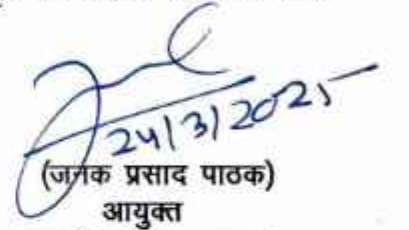 24/3/2025
(जनक प्रसाद पाठक)
आयुक्त